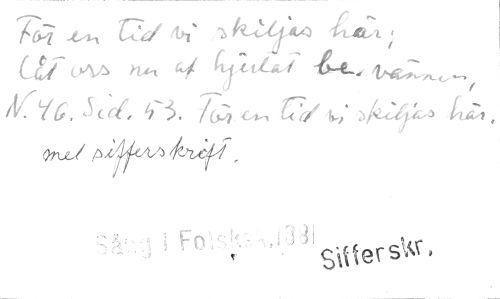 För en tid vi skiljas här;
Låt oss nu af hjertat be. vännen,
N. 46. Sid. 53. För en tid vi skiljas här.
med sifferskrift.
Sång i Folksk. 1881
Sifferskr.